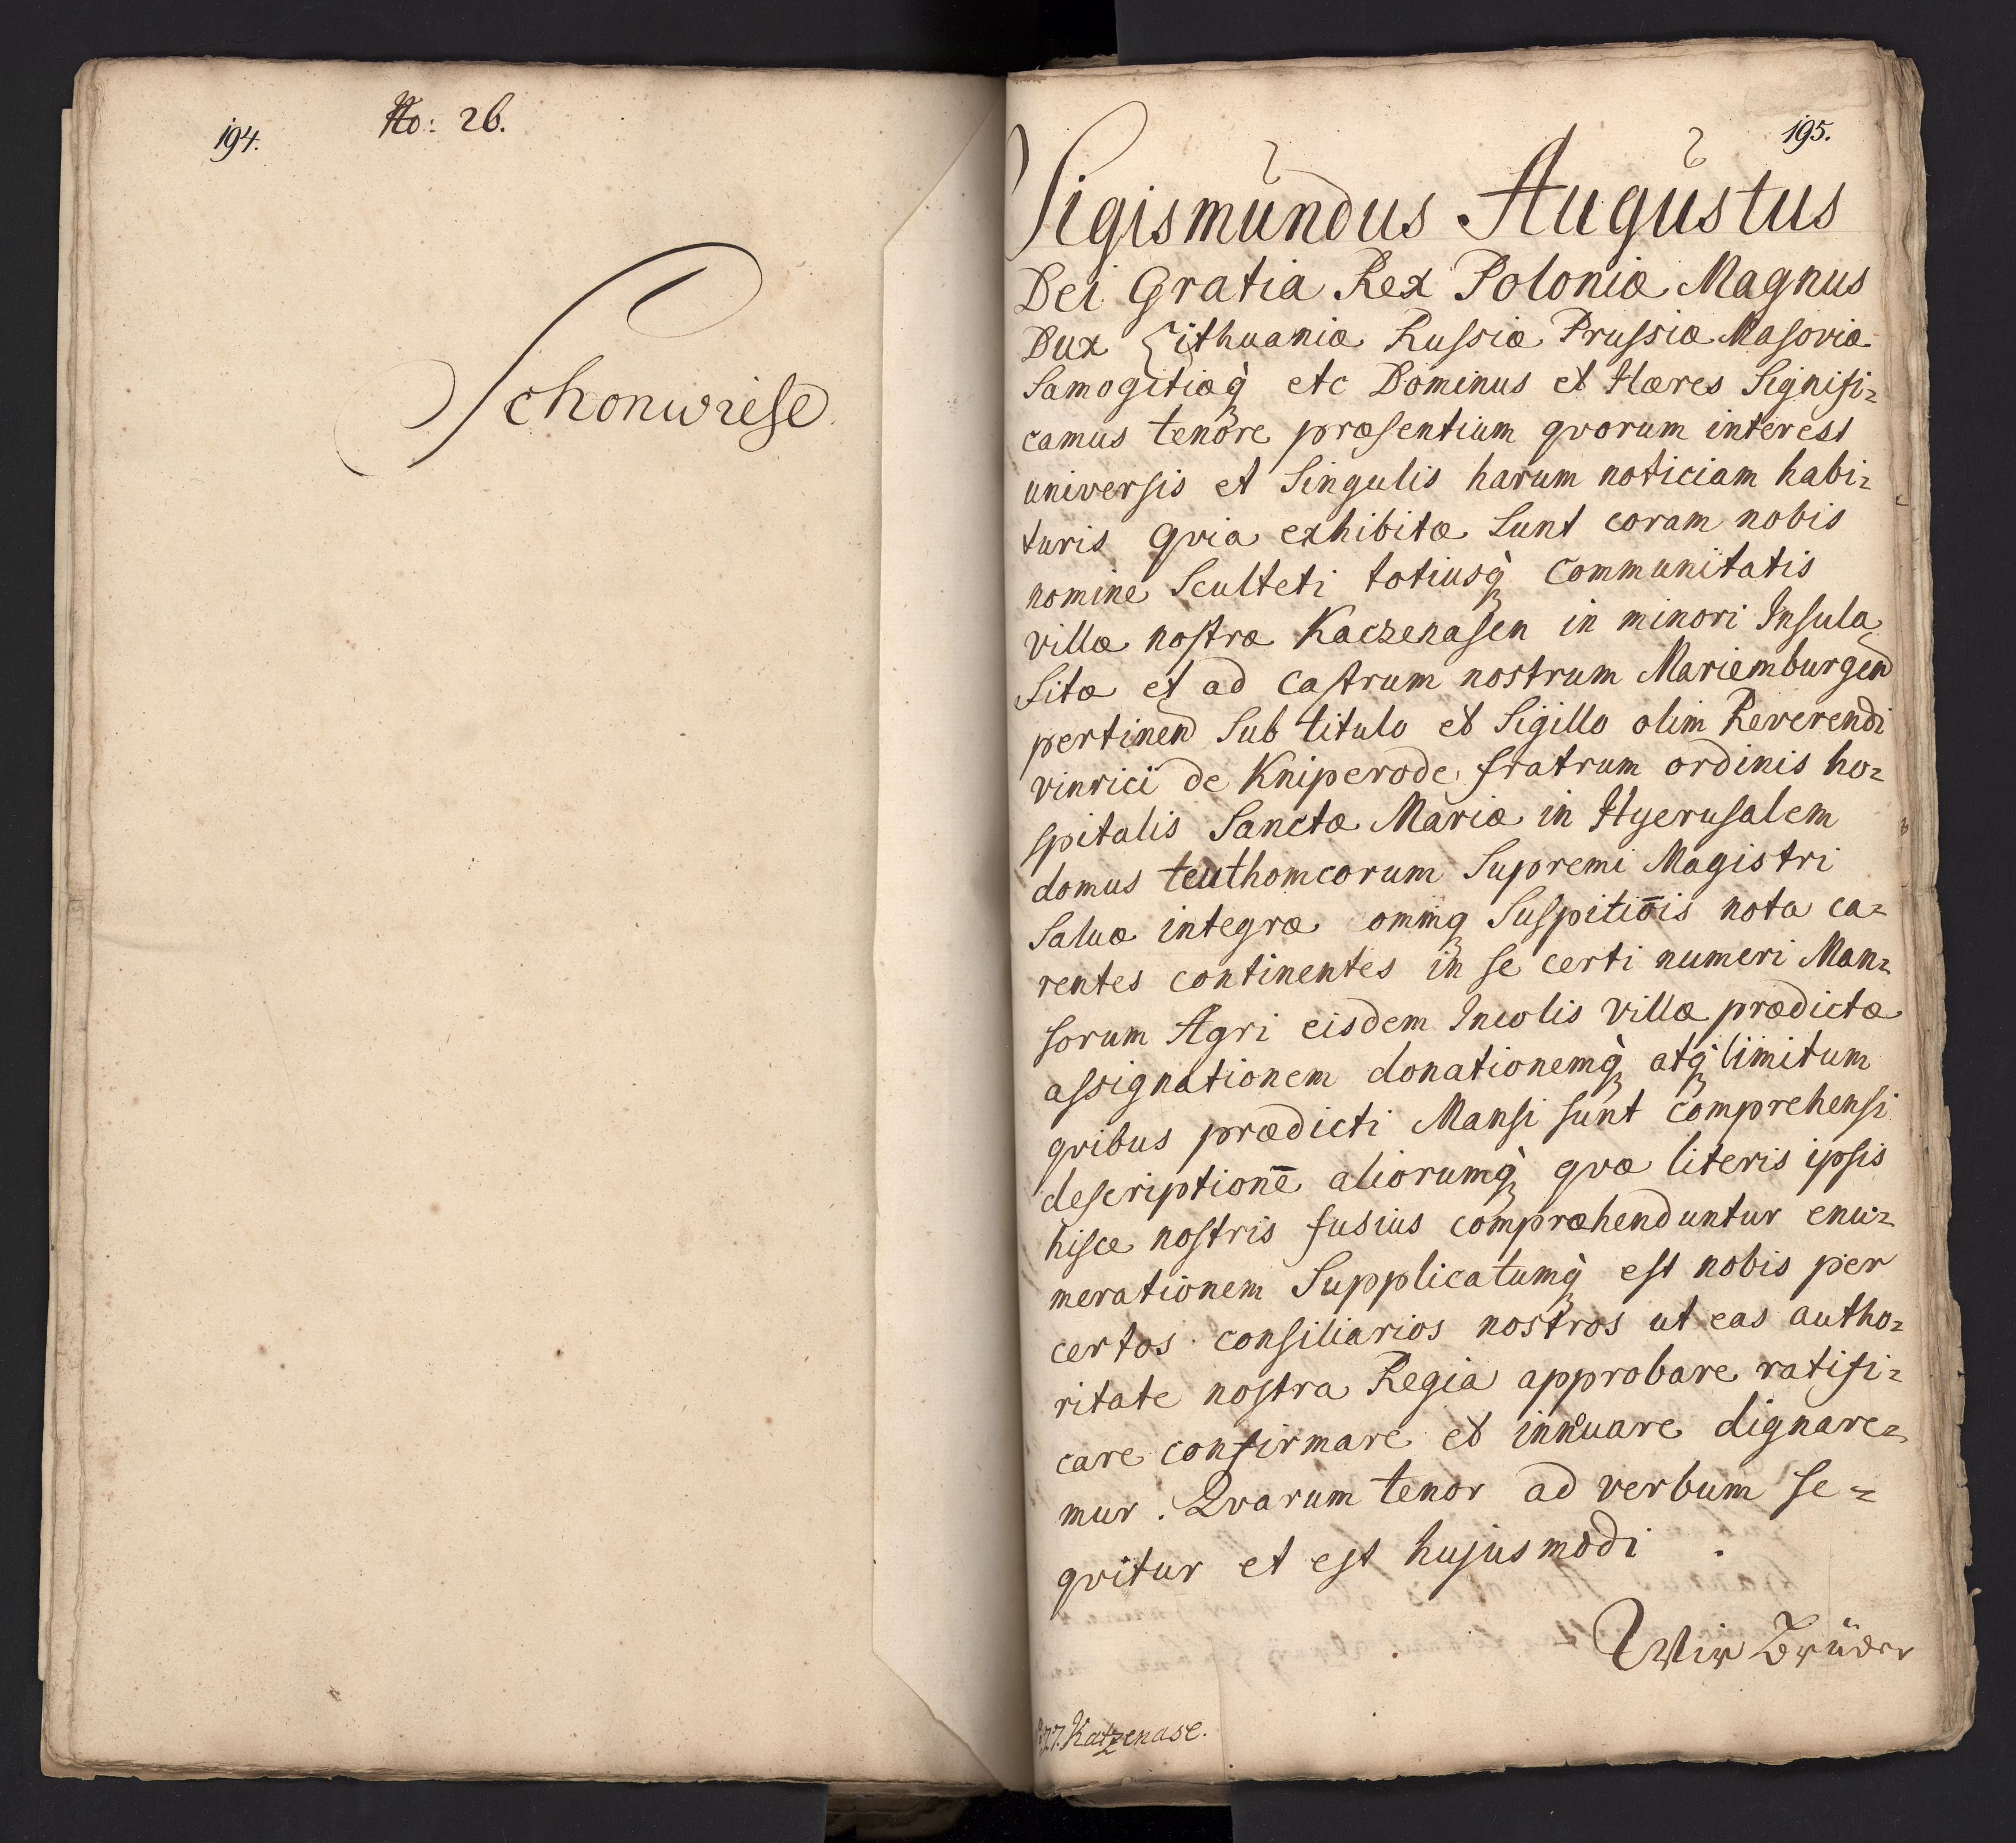 194.
No: 26.
Schonwiese
195.
Sigismundus Augustus
Dei Gratia Rex Poloniæ Magnus
Dux Lithuaniæ Russiæ Prussiæ Masoviæ
Samogitiæq́ etc Dominus et Hæres Signifi=
camus tenore præsentium qvorum interest
universis et Singulis harum noticiam habi=
turis Qvia exhibitæ Sunt coram nobis
nomine Sculteti totiusq́ Communitatis
villæ nostræ Kaczenasen in minori Insula
Sitæ et ad castrum nostrum Mariemburgen
pertinen Sub titulo et Sigillo olim Reverendi
vinrici de Kniperode fratrum ordinis ho=
spitalis Sanctæ Mariæ in Hyerusalem
domus teuthomcorum Supremi Magistri
Salvæ integræ omniq Suspitiōis nota ca=
rentes continentes in se certi numeri Man=
sorum Agri eisdem Incolis villæ prædictæ
assignationem donationemq́ atq́ limitum
qvibus prædicti Mansi sunt comprehensi
descriptionē aliorumq́ qvæ literis ipsis
hisce nostris fusius compræhenduntur enu=
merationem Supplicatumq́ est nobis per
certos consiliarios nostros ut eas autho=
ritate nostra Regia approbare ratifi=
care confirmare et innouare dignare=
mur. Qvarum tenor ad verbum se=
qvitur et est hujusmodi .
Wir Brüder
27. Katzenase.